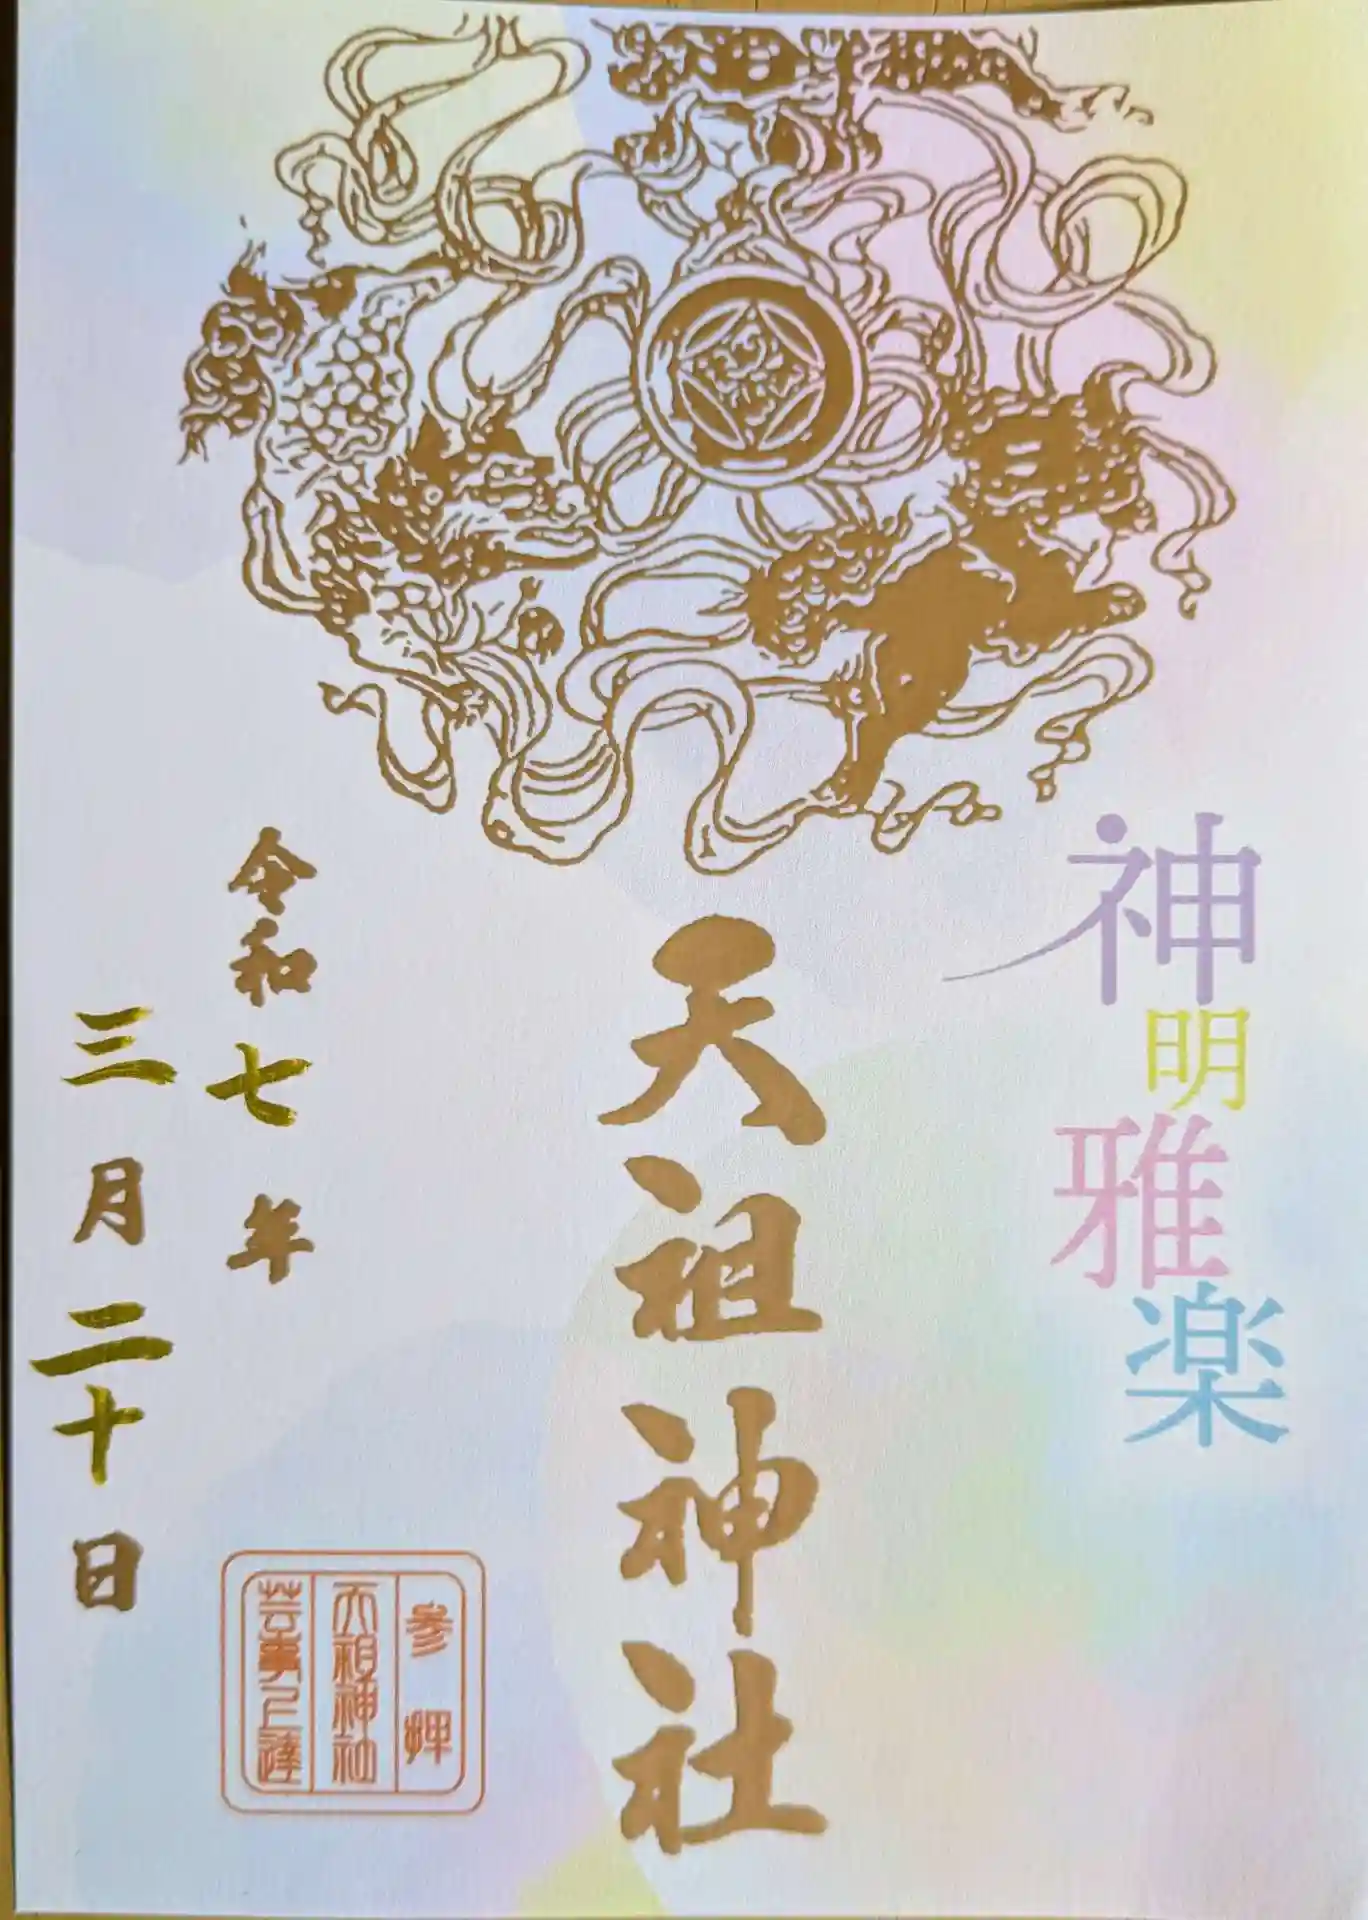 神明雅楽
天祖神社
令和七年
三月二十日
参拝
天祖神社
芸事上達